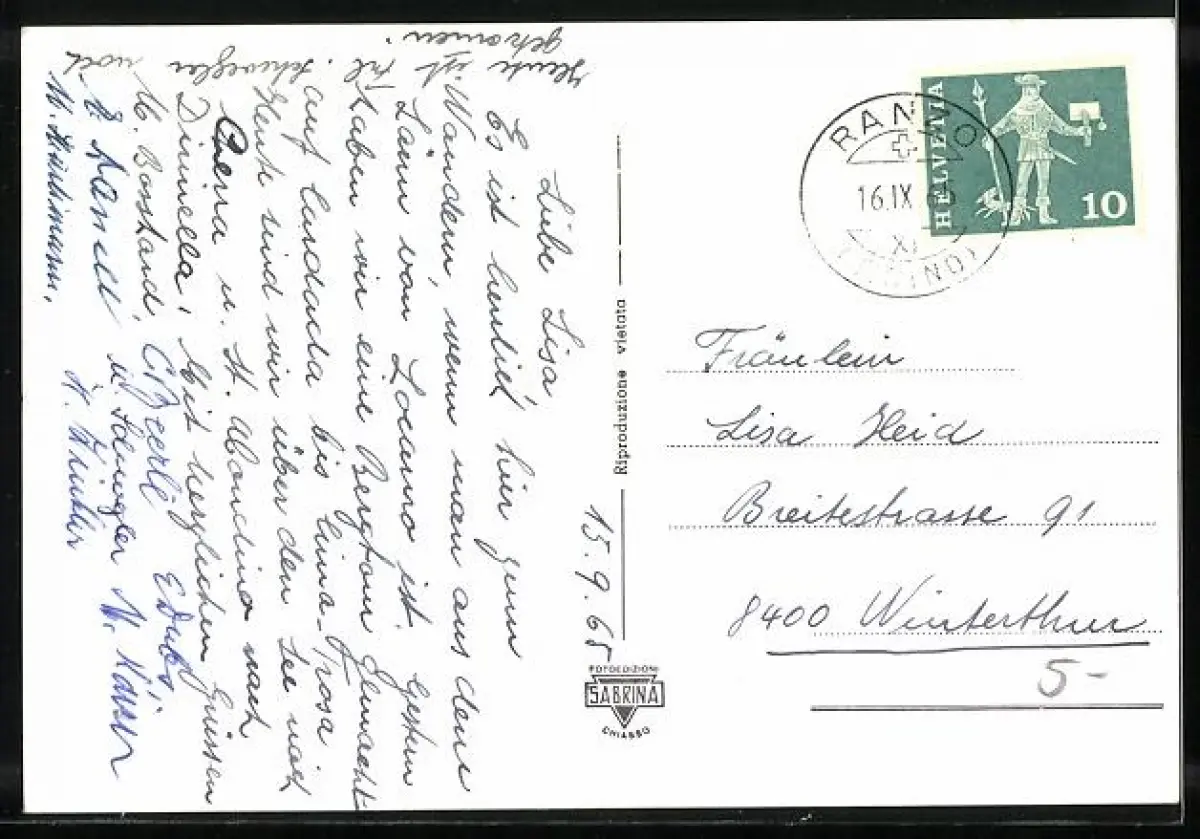 15.9.65
Liebe Lisa
Es ist herrlich hier zum
Wandern, wenn man aus dem
Lärm von Locarno ist. Gestern
haben wir eine Bergtour gemacht
auf Cardada bis Cima-Trosa
Heute sind wir über den See nach
Gerra u. St. Abondino nach
Dirinella. Mit herzlichen Grüssen
M. Bosshard
E. Dubs
u. Schwegler N. Käser
Heute ist Frl. Schwegler noch
gekommen.
Riproduzione vietata
FOTOEDIZIONI
SABRINA
CHIASSO
RANZO
16.IX. 65
XI
(TICINO)
HELVETIA
10
Fräulein
Lisa Heid
Breitestrasse 91
8400 Winterthur
5-